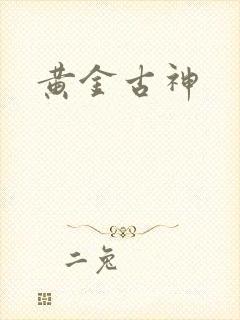 黄金古神
二兔